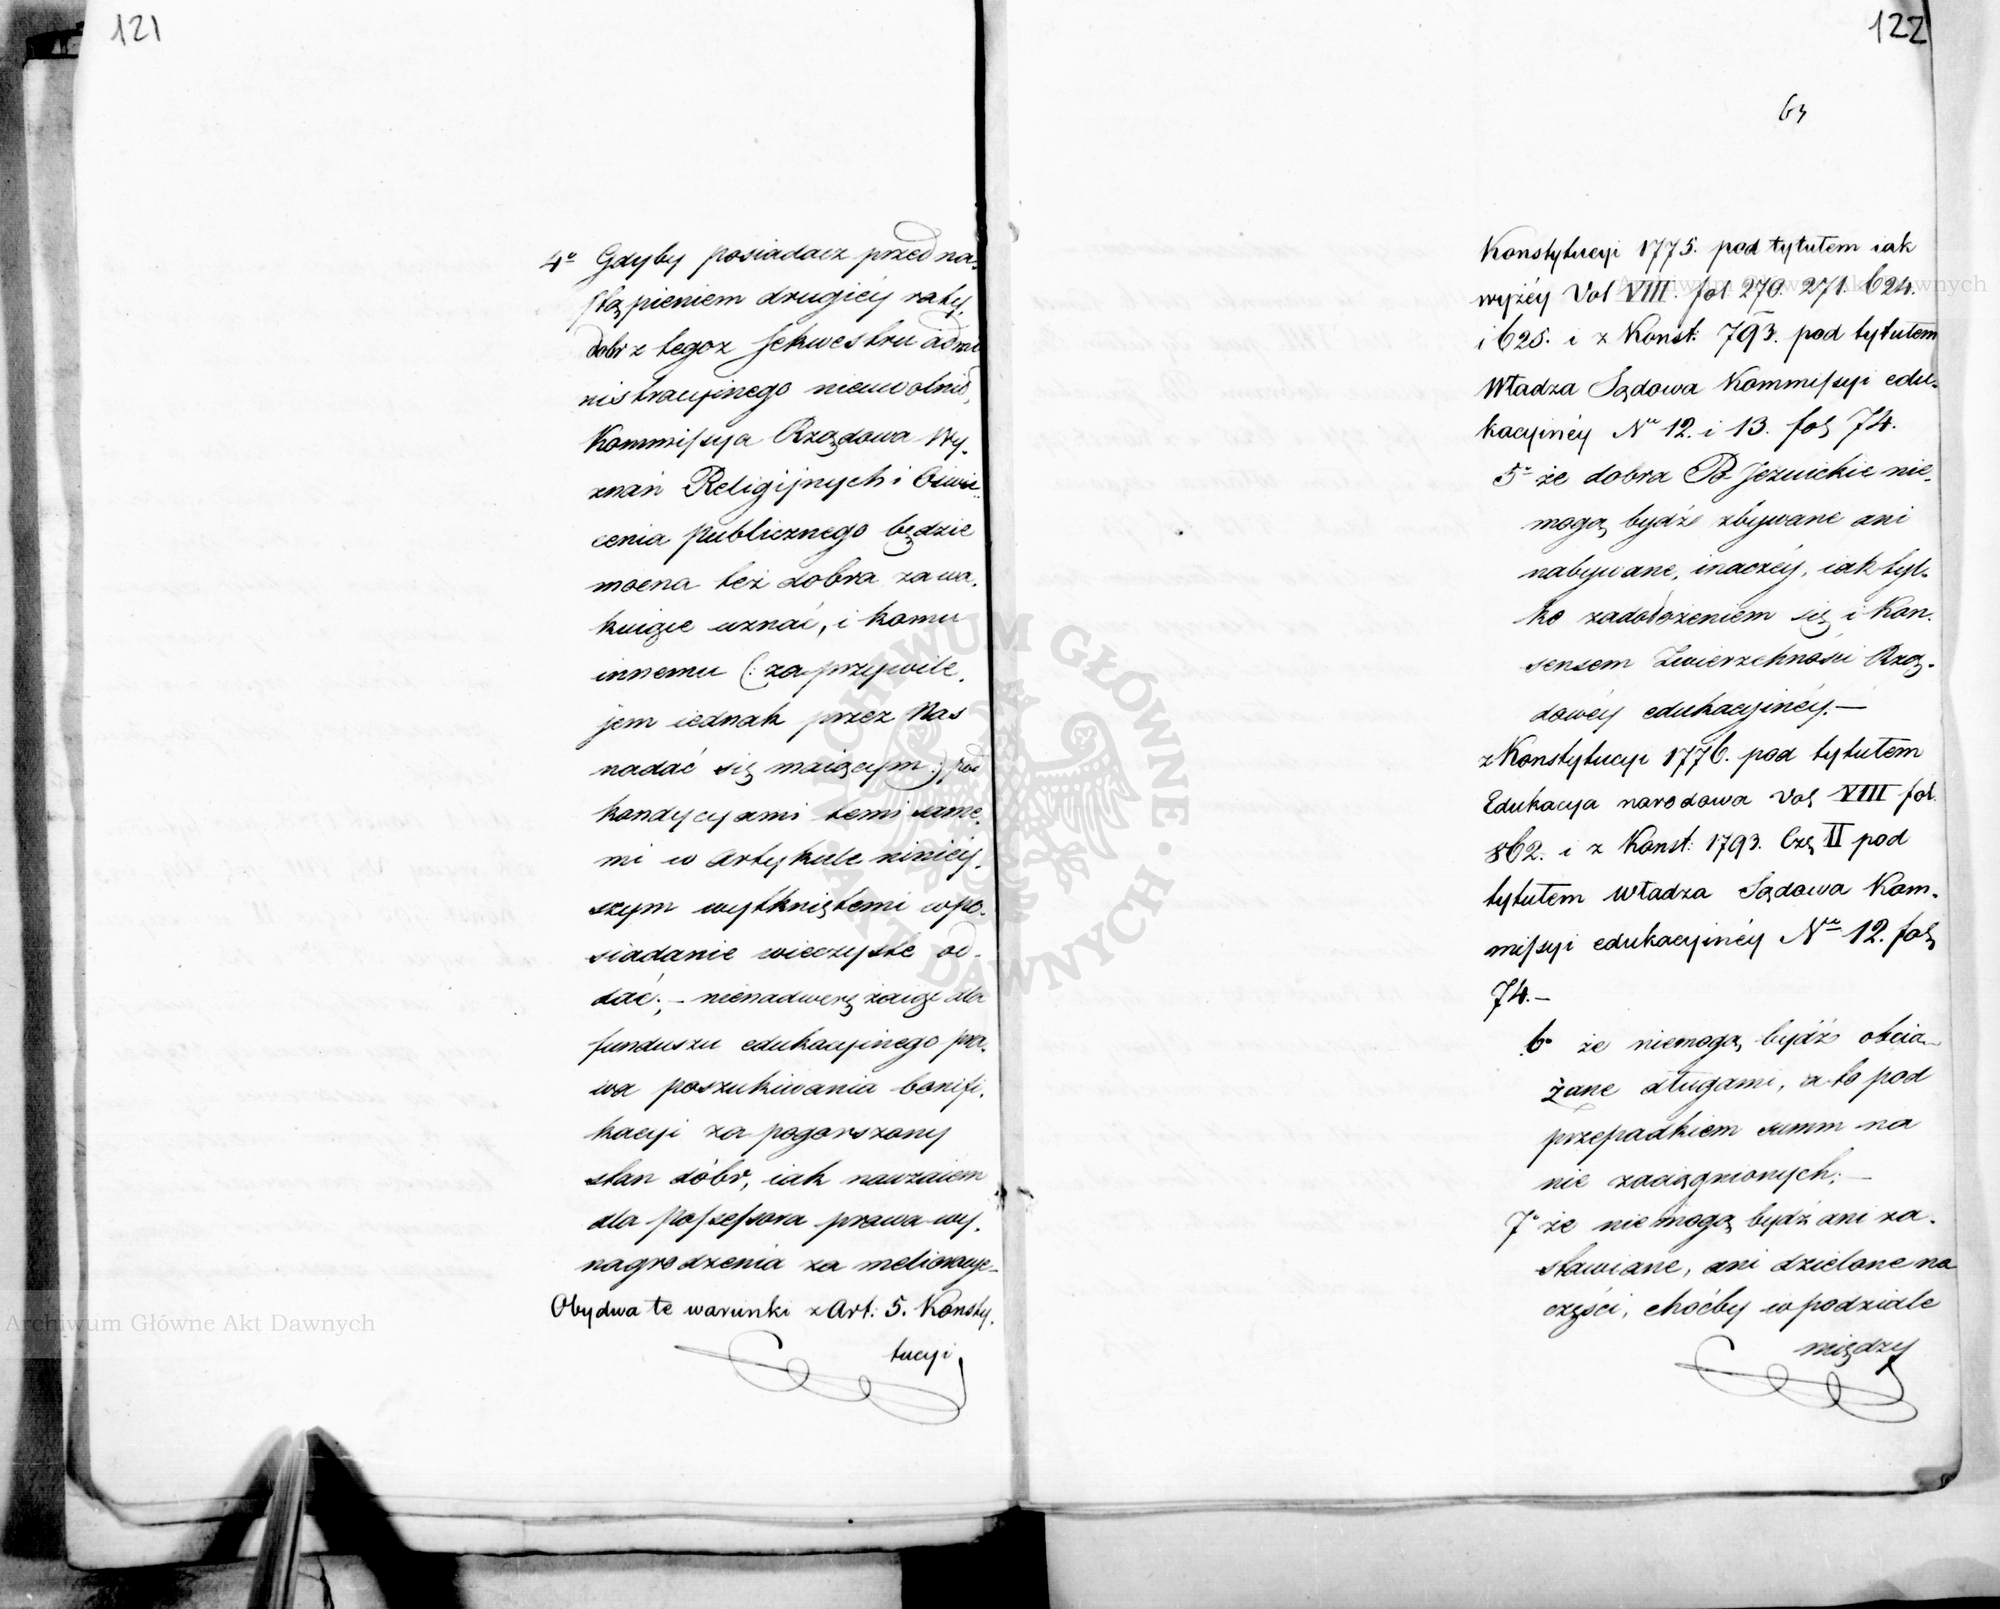 121
4º Gdyby posiadacz przed na-
stąpieniem drugiéy raty,
dobr z tegoz Sekwestru admi
nistracyinego nieuwolnił,
Kommissyia Rządowa Wy-
znań Religijnych i Oświe-
cenia publicznego będzie
mocna też dobra zawa-
kuiące uznać, i komu
innemu (: za przywile-
jem iednak przez Nas
nadać się maiącym :) pod
kondycyami temi same-
mi w artykule niniey-
szym wytkniętemi w po-
siadanie wieczyste od-
dać; – nienadweręzaiąc dla
funduszu edukacyinego pra-
wa poszukiwania bonifi-
kacyi za pogorszony
stan dóbr, iak nawzaiem
dla possessora prawa wy-
nagrodzenia za melioracye –
Obydwa te warunki z Art: 5. Konsty-
tucyi
122
63
Konstytucyi 1775. pod tytułem iak
wyżéy Vol VIII. fol 270. 271. 624.
i 625. i z Konst: 793. pod tytułem
Władza Sądowa Kommissyi edu-
kacyinéy Nº 12. i 13. fol 74.
5º że dobra Po Jezuickie nie-
mogą bydź zbywane ani
nabywane, inaczéy, iak tyl-
ko zadołożeniem się i Kon-
sensem Zwierzchności Rzą-
dowéy edukacyinéy. –
z Konstytucyi 1776. pod tytułem
Edukacya narodowa Vol VIII fol.
862. i z Konst: 1793. Czę II pod
tytułem Władza Sądowa Kom-
missyi edukacyinéy Nº 12. fol
74. –
6º że niemogą bydź obcią-
żane długami, a to pod
przepadkiem summ na
nie zaciągnionych; –
7º że niemogą bydź ani za-
stawiane, ani dzielone na
części, choćby w podziale
między
ARCHIWUM GŁÓWNE
AKT DAWNYCH
Archiwum Główne Akt Dawnych
Archiwum Główne Akt Dawnych